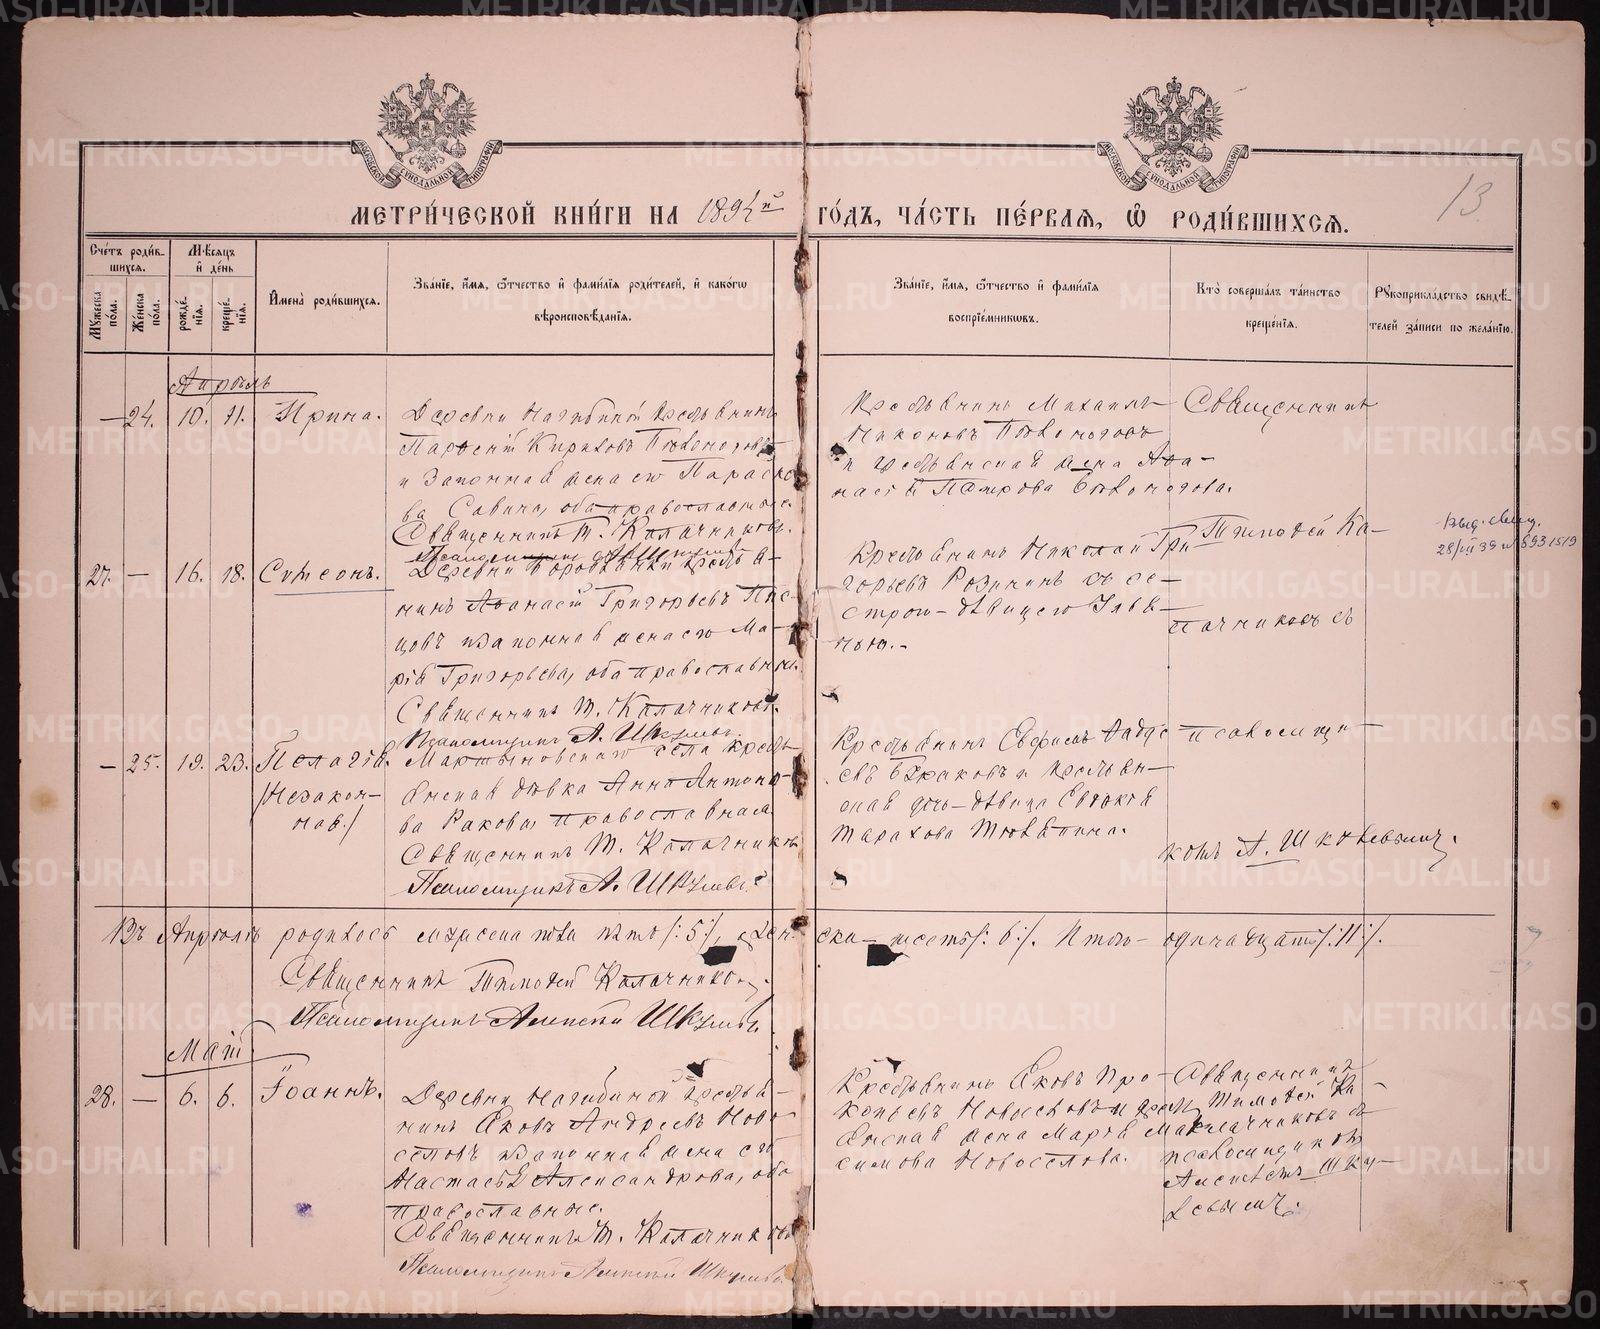 МЕТРИ́ЧЕСКОЙ КНИ́ГИ НА 1894й ГО́ДЪ, ЧА́СТЬ ПЕ́РВАѦ, Ѡ҆ РОДИ́ВШИХСѦ.
13
Сче́тъ роди́в-
шихсѧ.
Мꙋ́жеска по́ла.
Же́нска по́ла.
Мѣ́сѧцъ
и҆ де́нь
рожде́-
нїѧ.
креще́-
нїѧ.
И҆мена̀ роди́вшихсѧ.
Зва́нїе, и҆́мѧ, ѻ҆́тчество и҆ фами́лїѧ роди́телей, и҆ како́гѡ
вѣроисповѣ́данїѧ.
Зва́нїе, и҆́мѧ, ѻ҆́тчество и҆ фами́лїѧ
воспрїе́мникѡвъ.
Кто̀ соверша́лъ та́инство
креще́нїѧ.
Рꙋкоприкла́дство свидѣ́-
телей за́писи по жела́нїю.
Апрѣль
— 24. 10. 11. Ирина.
Деревни Нагибиной крестьянинъ
и законная жена его Параско-
ва Савина, оба православные.
Священникъ Т. Калачниковъ.
Крестьянинъ Михаилъ
и крестьянская жена Афа-
Священникъ
27. — 16. 18. Сѵмеонъ.
нинъ Афанасій Григорьевъ Пис-
цовъ и законная жена его Ма-
рія Григорьева, оба православные.
Священникъ Т. Калачниковъ.
Псаломщикъ А. Шкулевъ.
Крестьянинъ Николай Гри-
горьевъ Розининъ съ се-
строю - дѣвицею Улья-
ною.-
Тимофей Ка-
лачниковъ съ
Выд. свид.
— 25. 19. 23. Пелагія.
/Незакон-
ная./
Мартыновскаго села кресть-
янская дѣвка Анна Антоно-
ва Ракова, православная
Священникъ Т. Калачниковъ
Псаломщикъ А. Шкулевъ
Крестьянинъ Евфимъ
Раковъ и крестьян-
ская дочь - дѣвица Евдокія
псаломщи-
комъ А. Шкулевымъ.
Въ Апрѣлѣ родилось мужеска пола пять /:5:/, женска - шесть /:6:/. Итого - одинадцать /:11:/.
Священникъ Тимофей Калачниковъ.
Псаломщикъ Алексѣй Шкулевъ.
Май.
28. — 6. 6. Іоаннъ.
Деревни Нагибиной крестья-
нинъ Яковъ Андреевъ Ново-
селовъ и законная жена его
Настасья Александрова, оба
православные.
Священникъ Т. Калачниковъ
Псаломщикъ Алексѣй Шкулевъ
Крестьянинъ Яковъ Про-
копьевъ Новоселовъ и кресть-
янская жена Марія Мак-
симова Новоселова.
Священникъ
Тимофей Ка-
лачниковъ съ
псаломщикомъ
Алексѣемъ Шку-
левымъ.
METRIKI.GASO-URAL.RU